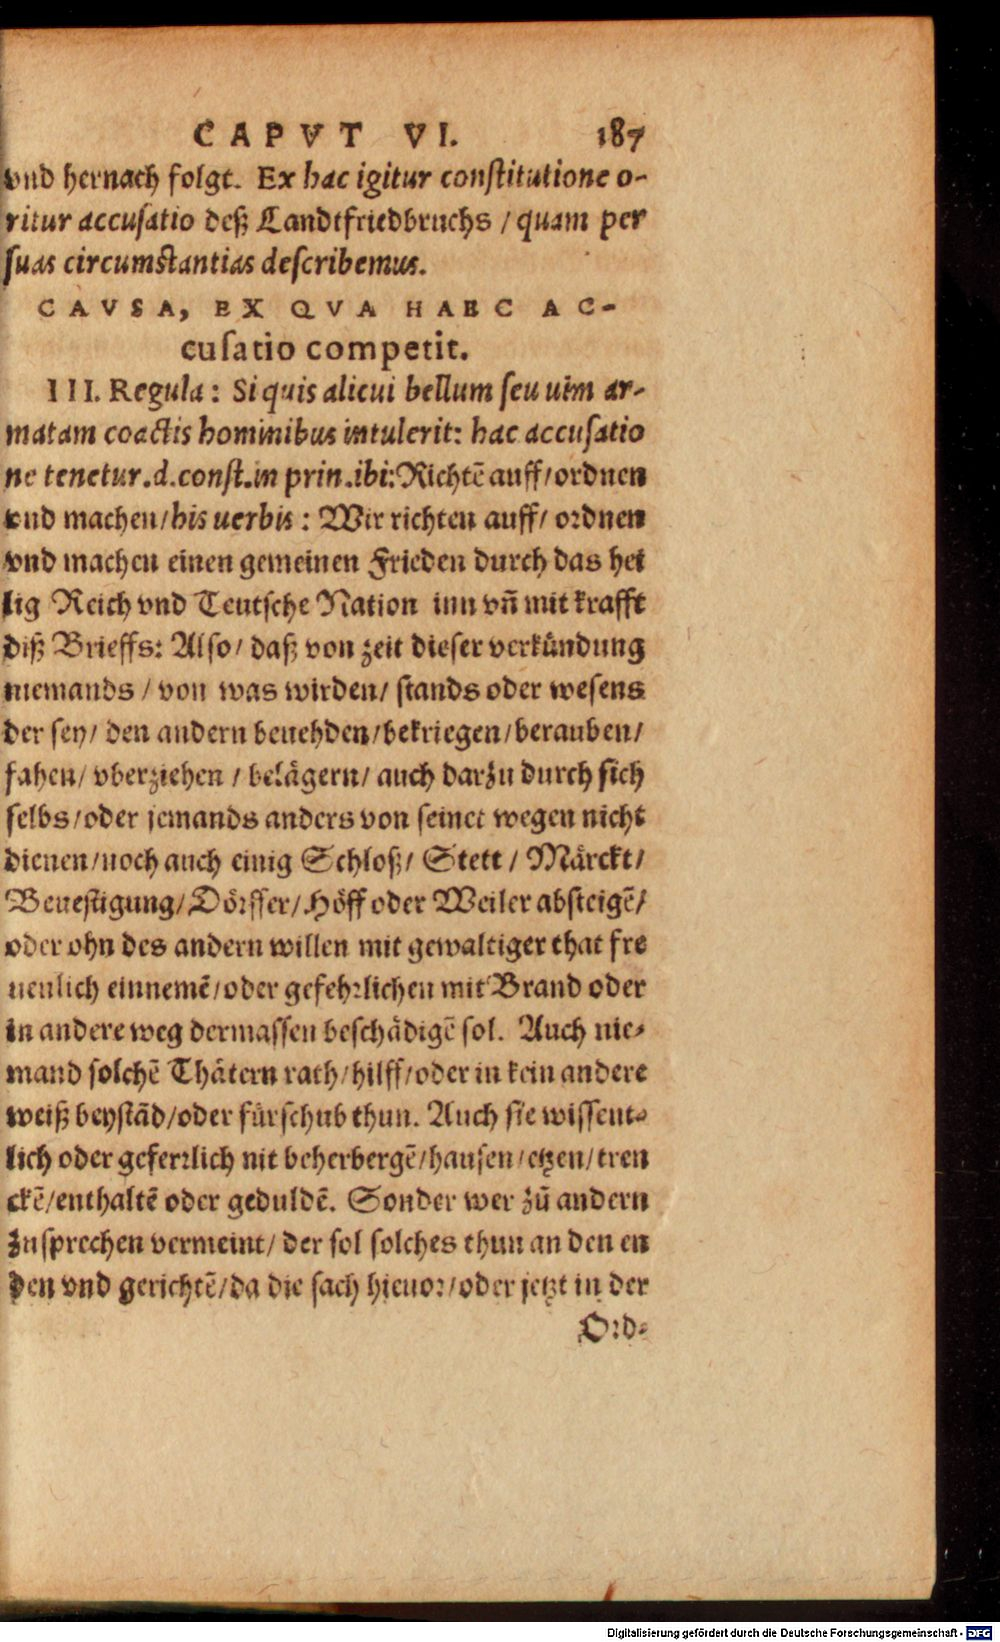 CAPVT VI. 187
vnd hernach folgt. Ex hac igitur constitutione o-
ritur accusatio deß Landtfriedbruchs / quam per
suas circumstantias describemus.
CAVSA, EX QVA HAEC AC-
cusatio competit.
III. Regula: Si quis alicui bellum seu uim ar-
matam coactis hominibus intulerit: hac accusatio
ne tenetur. d. const. in prin. ibi: Richtē auff/ ordnen
vnd machen/ his uerbis: Wir richten auff/ ordnen
vnd machen einen gemeinen Frieden durch das hei
lig Reich vnd Teutsche Nation inn vñ mit krafft
diß Brieffs: Also/ daß von zeit dieser verkündung
niemands / von was wirden/ stands oder wesens
der sey/ den andern beuehden/ bekriegen/ berauben/
fahen/ vberziehen / belägern/ auch darzu durch sich
selbs/ oder jemands anders von seinet wegen nicht
dienen/ noch auch einig Schloß/ Stett / Märckt/
Beuestigung/ Dörffer/ Höff oder Weiler absteigē/
oder ohn des andern willen mit gewaltiger that fre
uenlich einnemē/ oder gefehrlichen mit Brand oder
in andere weg dermassen beschädigē sol. Auch nie-
mand solchē Thätern rath/ hilff/ oder in kein andere
weiß beystād/ oder fürschub thun. Auch sie wissent-
lich oder geferrlich nit beherbergē/ hausen/ etzen/ tren
ckē/ enthaltē oder geduldē. Sonder wer zū andern
zusprechen vermeint/ der sol solches thun an den en
den vnd gerichtē/ da die sach hieuor/ oder jetzt in der
Ord-
Digitalisierung gefördert durch die Deutsche Forschungsgemeinschaft - DFG